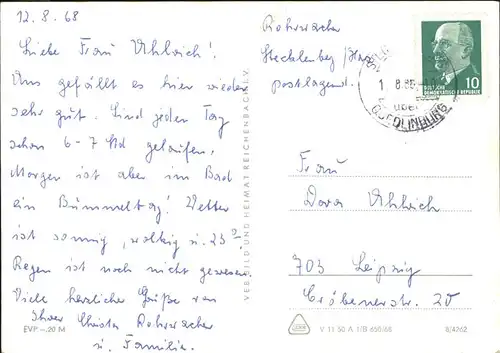 12.8.68
Liebe Frau Uhlrich!
Uns gefällt es hier wieder
sehr gut. Sind jeden Tag
schon 6-7 Std gelaufen,
Morgen ist aber im Bad
ein Bummeltag! Wetter
ist sonnig, wolkig u. 23°
Regen ist noch nicht gewesen.
Viele herzliche Grüße von
Ihrer Christa Rohrwacher
u. Familie.
EVP -,20 M
VEB BILD UND HEIMAT REICHENBACH I. V.
Rohrwacher
Stecklenberg/Harz
postlagernd.
DEUTSCHE
DEMOKRATISCHE REPUBLIK
10
über
QUEDLINBURG
Frau
Dora Uhlrich
703 Leipzig
Cröbenerstr. 20
V 11 50 A 1/B 650/66
8/4262